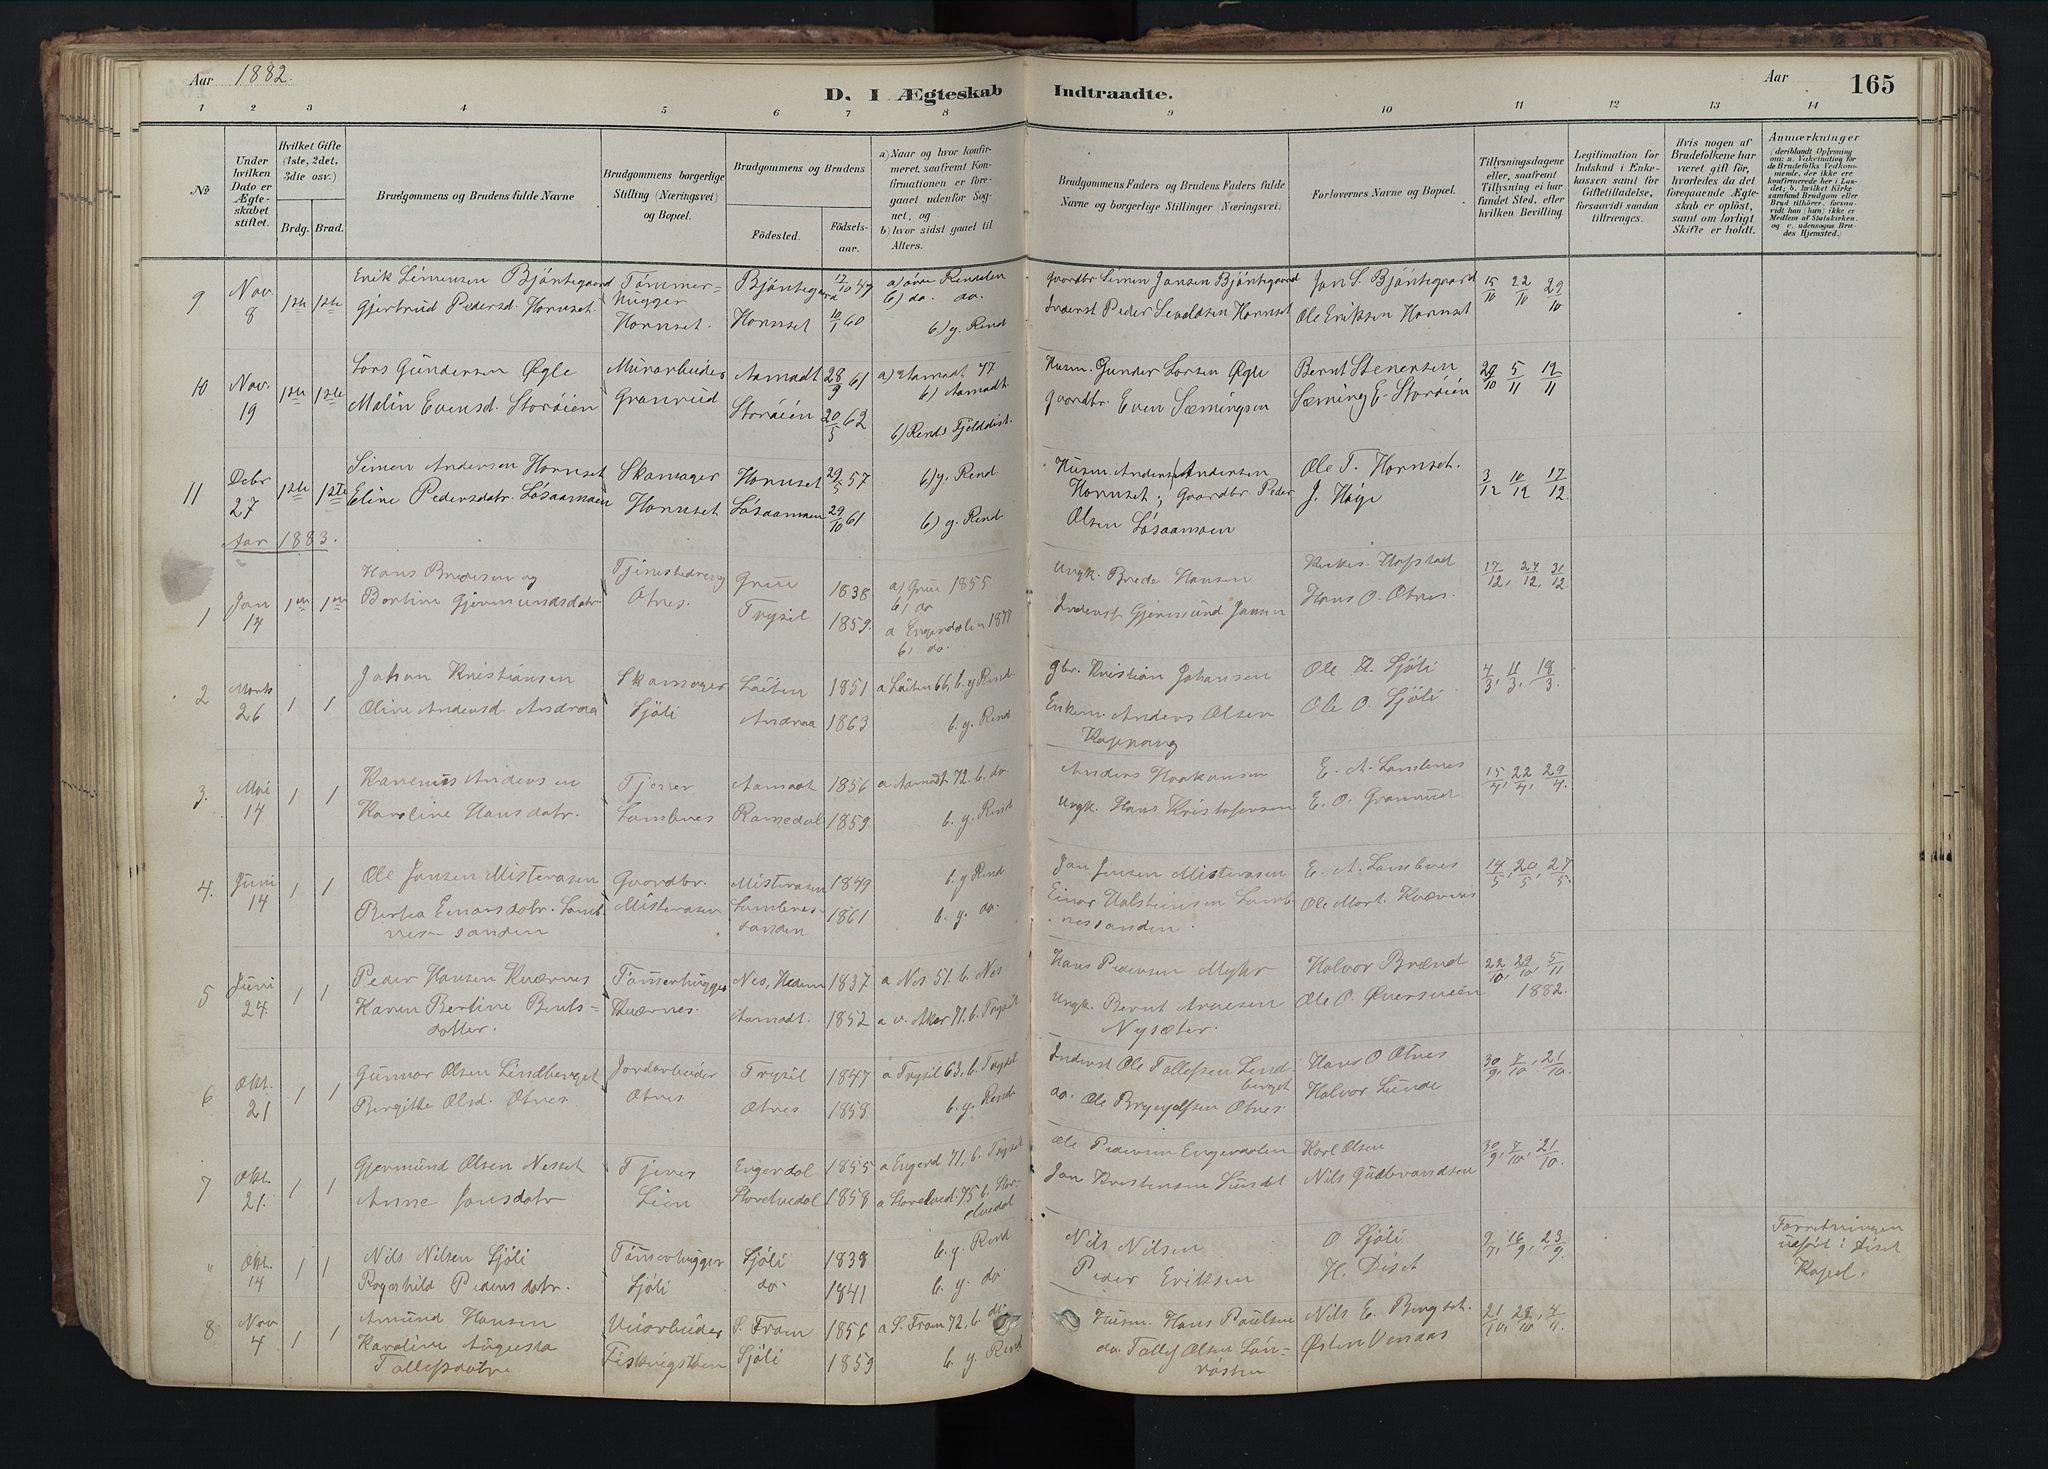 Aar 1882.
D. I Ægteskab Indtraadte.
Aar 165
1 2 3 4 5 6 7 8 9 10 11 12 13 14
No
Under hvilken Dato er Ægteskabet stiftet.
Hvilket Gifte (1ste, 2det, 3die osv.)
Brdg. Brud.
Brudgommens og Brudens fulde Navne
Brudgommens borgerlige Stilling (Næringsvei) og Bopæl.
Brudgommens og Brudens
Födested. Födselsaar.
a) Naar og hvor konfirmeret, saafremt Konfirmationen er foregaaet udenfor Sognet, og
b) hvor sidst gaaet til Alters.
Brudgommens Faders og Brudens Faders fulde Navne og borgerlige Stillinger (Næringsvei).
Forlovernes Navne og Bopæl.
Tillysningsdagene eller, saafremt Tillysning ei har fundet Sted, efter hvilken Bevilling.
Legitimation for Indskud i Enkekassen samt for Giftetilladelse, forsaavidt saadan tiltrænges.
Hvis nogen af Brudefolkene har været gift før, hvorledes da det foregaaende Ægteskab er oplöst, samt om lovligt Skifte er holdt.
Anmærkninger
9 Nov 8 1ste 1ste Erik Simensen Bjöntegaard Tømmerhugger Bjöntegaard 17/10 47 a) øvre Rendalen b) do. do. Gaardbr Simen Jonsen Bjöntegaard Jon S. Bjöntegaard 15/10 22/10 29/10
Gjertrud Pedersd. Hornset. Hornset. Hornset 10/1 60 b) y. Rend Inderst Peder Hornset Ole Eriksen Hornset
10 Nov. 19 1ste 1ste Lars Gundersen Øgle Murarbeider Aamadt 28/9 61 a) Aamadt 77 b) Aamadt. Husm. Gunder Larsen Øgle Bernt Stenersen 29/10 5/11 12/11
Malin Evensd. Storöien Granrud Storöien 20/5 62 b) Rend. Fjelddist. Gaardbr. Even Sæmingsen Sæming E. Storöien
11 Debr 27 1ste 1ste Simon Andersen Hornset Skomager Hornset 29/5 57 b) y. Rend Husm. Anders Andersen Ole T. Hornset. 3/12 10/12 17/12
Eline Pedersdatr. Løsaamoen Hornset Løsaamoen 29/10 61 b) y. Rend. Hornset; Gaardbr Peder J. Høge
Olsen Løsaamoen
Aar 1883.
1 Jan 14 1ste 1ste Hans Bredesen og Tjenestedreng Grue 1838 a) Grue 1855 b, do Ungk. Brede Hansen Kirkes. Hofstad 17/12, 24/12, 31/12
Bertine Gjermundsdatr. Otnes. Trysil 1859. a Engerdalen 1877 b, do. Inderst Gjermund Jonsen Hans O. Otnes.
2 Marts 26 1 1 Johan Kristiansen Skomager Løiten 1851 a Løiten 66, b. y Rend. gbr. Kristian Johansen Ole H. Sjöli 4/3, 11/3, 18/3.
Oline Andersd. Andraa Sjöli Andraa 1863 b. y. Rend Enkem. Anders Olsen Ole O. Sjöli
Koppang
3. Mai 14 1 1 Karenus Andersen Tjener Aamadt 1856 a Aamadt 72. b. do. Anders Haakonsen E. A. Lombnes 15/4, 22/4, 29/4.
Karoline Hansdatr. Lombnes Romedal 1859 b. y. Rend Ungk. Hans Kristofersen E. O. Granrud
4. Juni 14 1 1 Ole Jonsen Misteraasen Gaardbr. Misteraasen 1849 b. y Rend Jon Jonsen Misteraasen E. A. Lombnes 14/5, 20/5, 27/5.
Berta Einarsdatr. Lomb Misteraasen Lombnessanden 1861 b. y. do. Einar Halstensen Lomb Ole Mort. Kværnes
nes-sanden nessanden.
5 Juni 24. 1 1 Peder Hansen Kværnes Tømmerhugger Nes, Hedem 1837 a Nes 51. b. Nes Hans Pedersen Myhr Halvor Brænd 22/10, 29/10, 5/11
Karen Bertine Bentsdatter. Kværnes. Aamadt. 1852 a v. Aker 71. b. Trysil Ungk. Bernt Arnesen Ole O. Øversveen 1882.
Nysæter.
6 Okt. 21 1 1 Gunnar Olsen Lindberget Jordarbeider Trysil 1847 a Trysil 63, b. Trysil Inderst Ole Tollefsen Lindberget Hans O Otnes 30/9, 7/10, 21/10.
Birgitte Olsd. Otnes. Otnes Otnes 1858 b. y. Rend. do. Ole Brynjulfsen Otnes. Halvor Lunde
7 Okt. 21. 1 1 Gjermund Olsen Nesset Tjener Engerdal 1855 a Engerd 71, b. Trysil Ole Pedersen Engerdalen Karl Olsen 30/9, 7/10, 21/10.
Anne Jonsdatr Lien Storelvedal 1858 a Storelved. 75 b. Storelvedal Jon Kristensen Sundet Nils Gudbrandsen
" Okt. 14 1 1 Nils Nilsen Sjöli Tømmerhugger Sjöli 1838 b. y. Rend Nils Nilsen O Sjöli 9/9, 16/9, 23/9. Forretningen udført i Diset Kapel.
Ragnhild Pedersdatr. Sjöli do. 1841 b. y. do Peder Eriksen H. Diset
8 Nov 4 1 1 Amund Hansen Veiarbeider S. Fron 1856 a S. Fron 72, b. do. Husm. Hans Poulsen Nils E. Bergset. 21/10, 28/10, 4/11.
Karoline Augusta Sjöli 1859 b. y. Rend do. Tollef Olsen Østen Venaas
Tollefsdatr